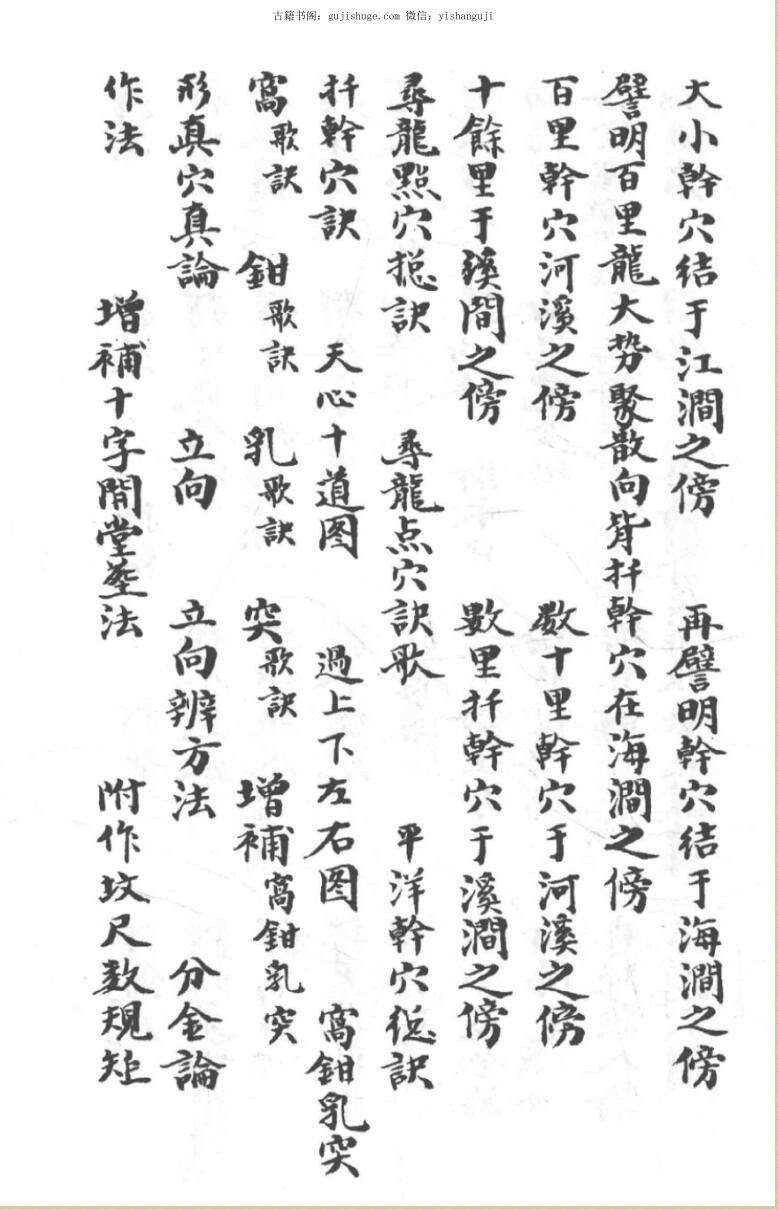 古籍书阁：gujishuge.com 微信：yishanguji
大小幹穴结于江澗之傍　再譬明幹穴结于海澗之傍
譬明百里龍大势聚散向背扦幹穴在海澗之傍
百里幹穴河溪之傍　数十里幹穴于河溪之傍
十餘里于溪間之傍　數里扦幹穴于溪澗之傍
尋龍點穴揔訣　尋龍点穴訣歌　平洋幹穴揔訣
扦幹穴訣　天心十道图　過上下左右图　窩鉗乳突
窩歌訣　鉗歌訣　乳歌訣　突歌訣　增補窩鉗乳突
形真穴真論　立向　立向辨方法　分金論
作法　增補十字間堂塟法　附作坟尺数規矩